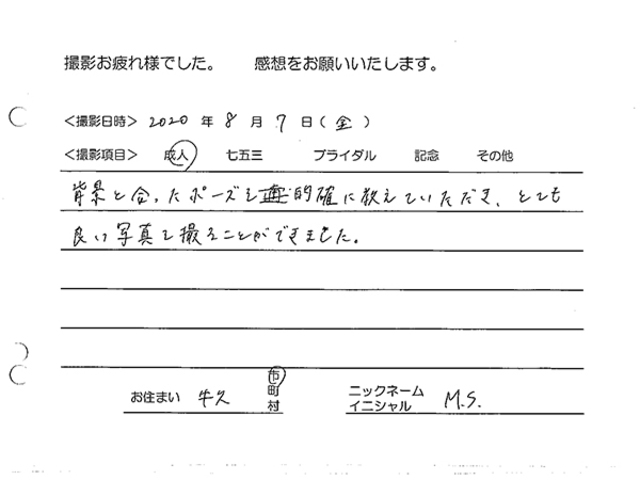 撮影お疲れ様でした。 感想をお願いいたします。
<撮影日時> 2020 年 8 月 7 日(金)
<撮影項目> 成人 七五三 ブライダル 記念 その他
背景と合ったポーズを的確に教えていただき、とても
良い写真を撮ることができました。
お住まい 牛久 市町村 ニックネーム イニシャル M.S.